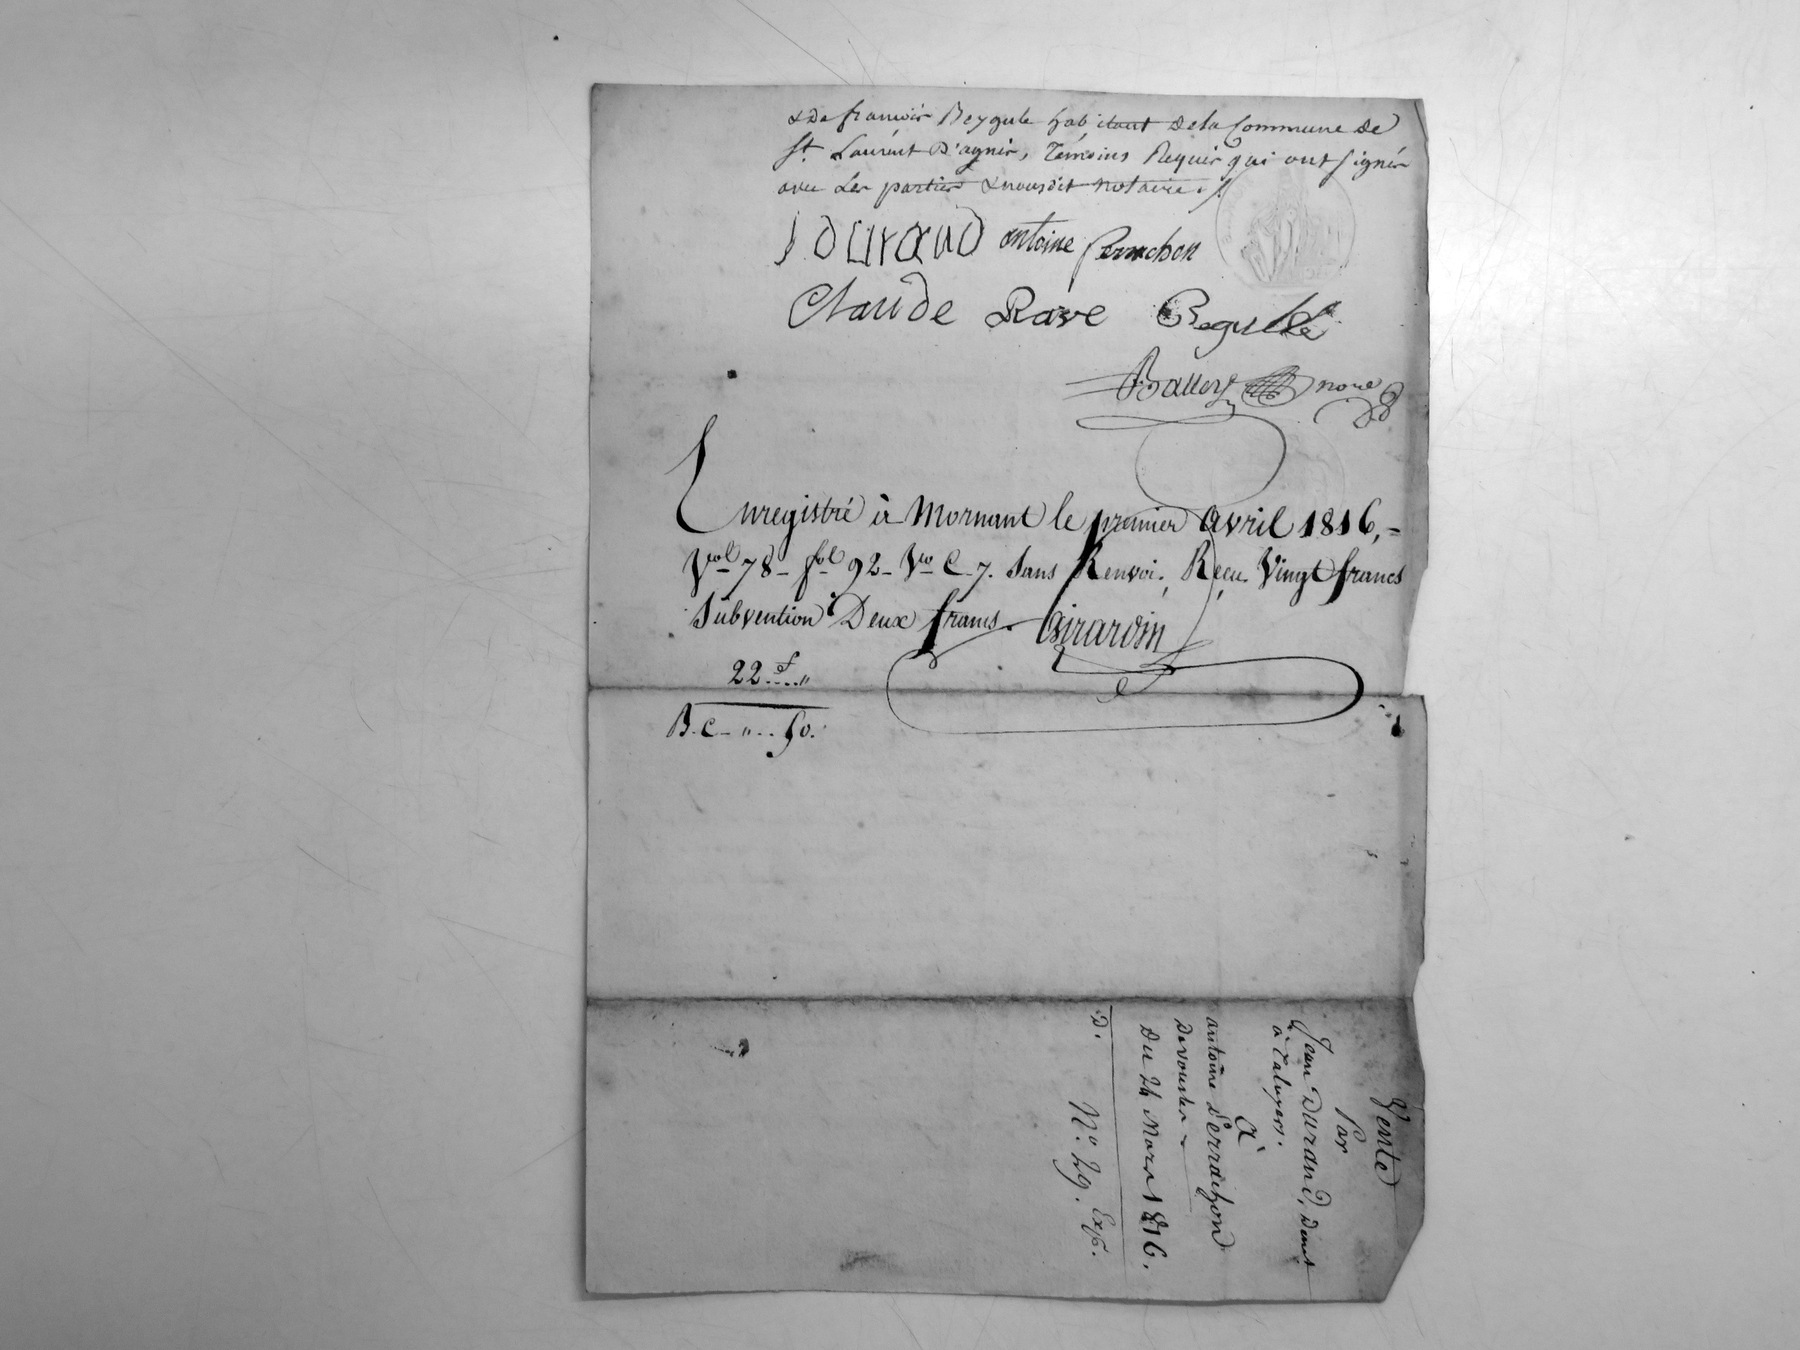 & de françois Beygule habitant de la Commune de
St. Laurent D'agnis, Témoins Requis qui ont signés
avec Les parties & nousdit notaire ./.
J DURAND antoine Perrachon
Claude Rave Begulle
Balley nore
Enregistré à Mornant le premier avril 1816, =
Vol 78 - fol 92 - Vo C. 7. Sans Renvoi. Reçu Vingt francs
Subvention Deux francs. Girardin
22 f .... "
B. C - " .. 50.
Vente
Par
Jean Durand, Dmt
à Taluyers.
à
antoine Perrachon
Du 24 Mars 1816.
D. No. 29. Exp.